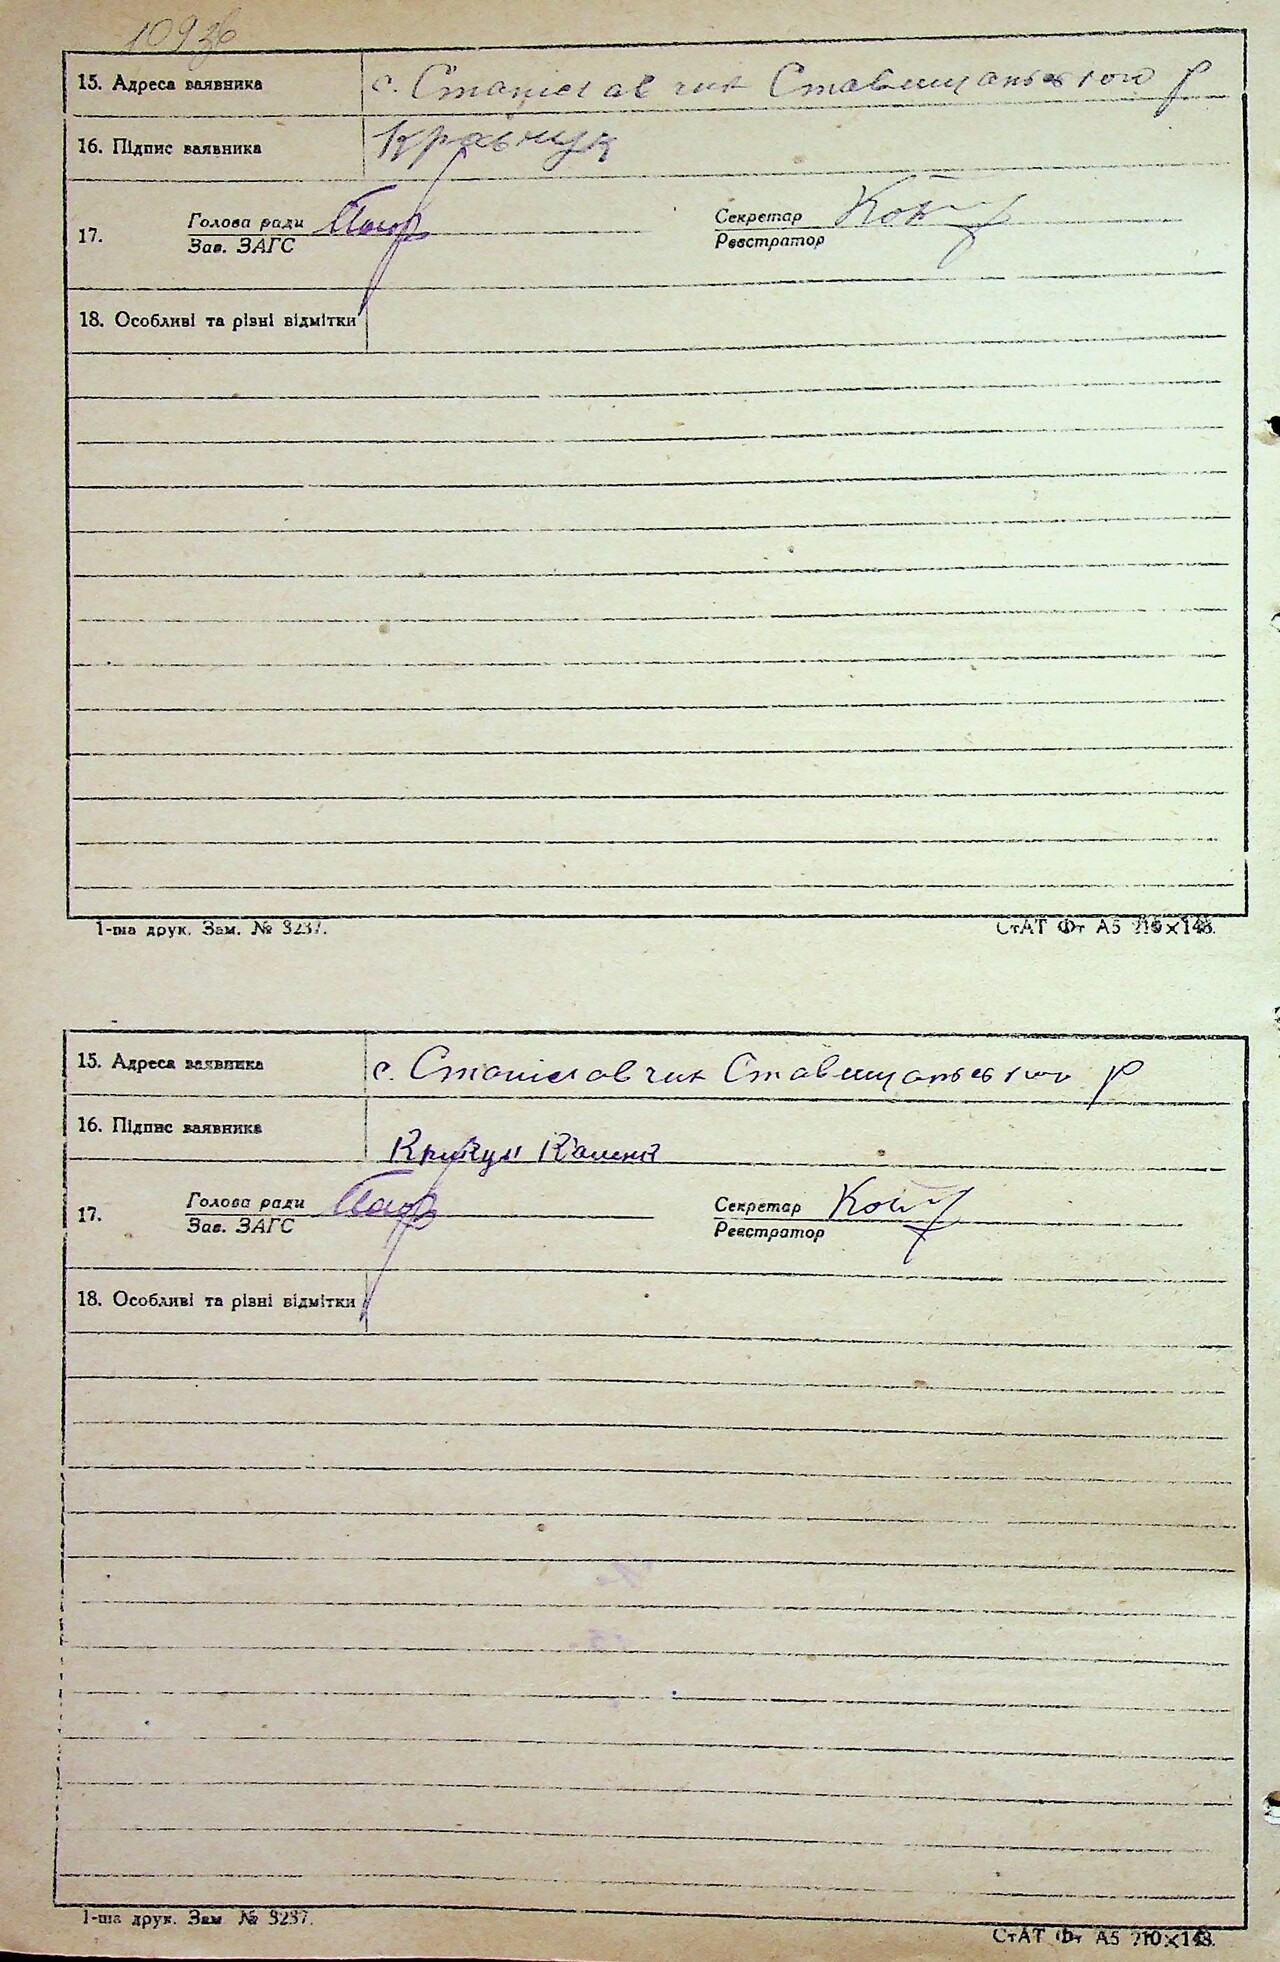 109зв
15. Адреса заявника с. Станіславчик Ставищанського р
16. Підпис заявника Кравчук
17. Голова ради
Зав. ЗАГС
Секретар
Реєстратор
18. Особливі та різні відмітки
1-ша друк. Зам. № 3237.
СтАТ Фт А5 210×148.
15. Адреса заявника с. Станіславчик Ставищанського р
16. Підпис заявника
17. Голова ради
Зав. ЗАГС
Секретар
Реєстратор
18. Особливі та різні відмітки
1-ша друк. Зам. № 3237.
СтАТ Фт А5 210×148.